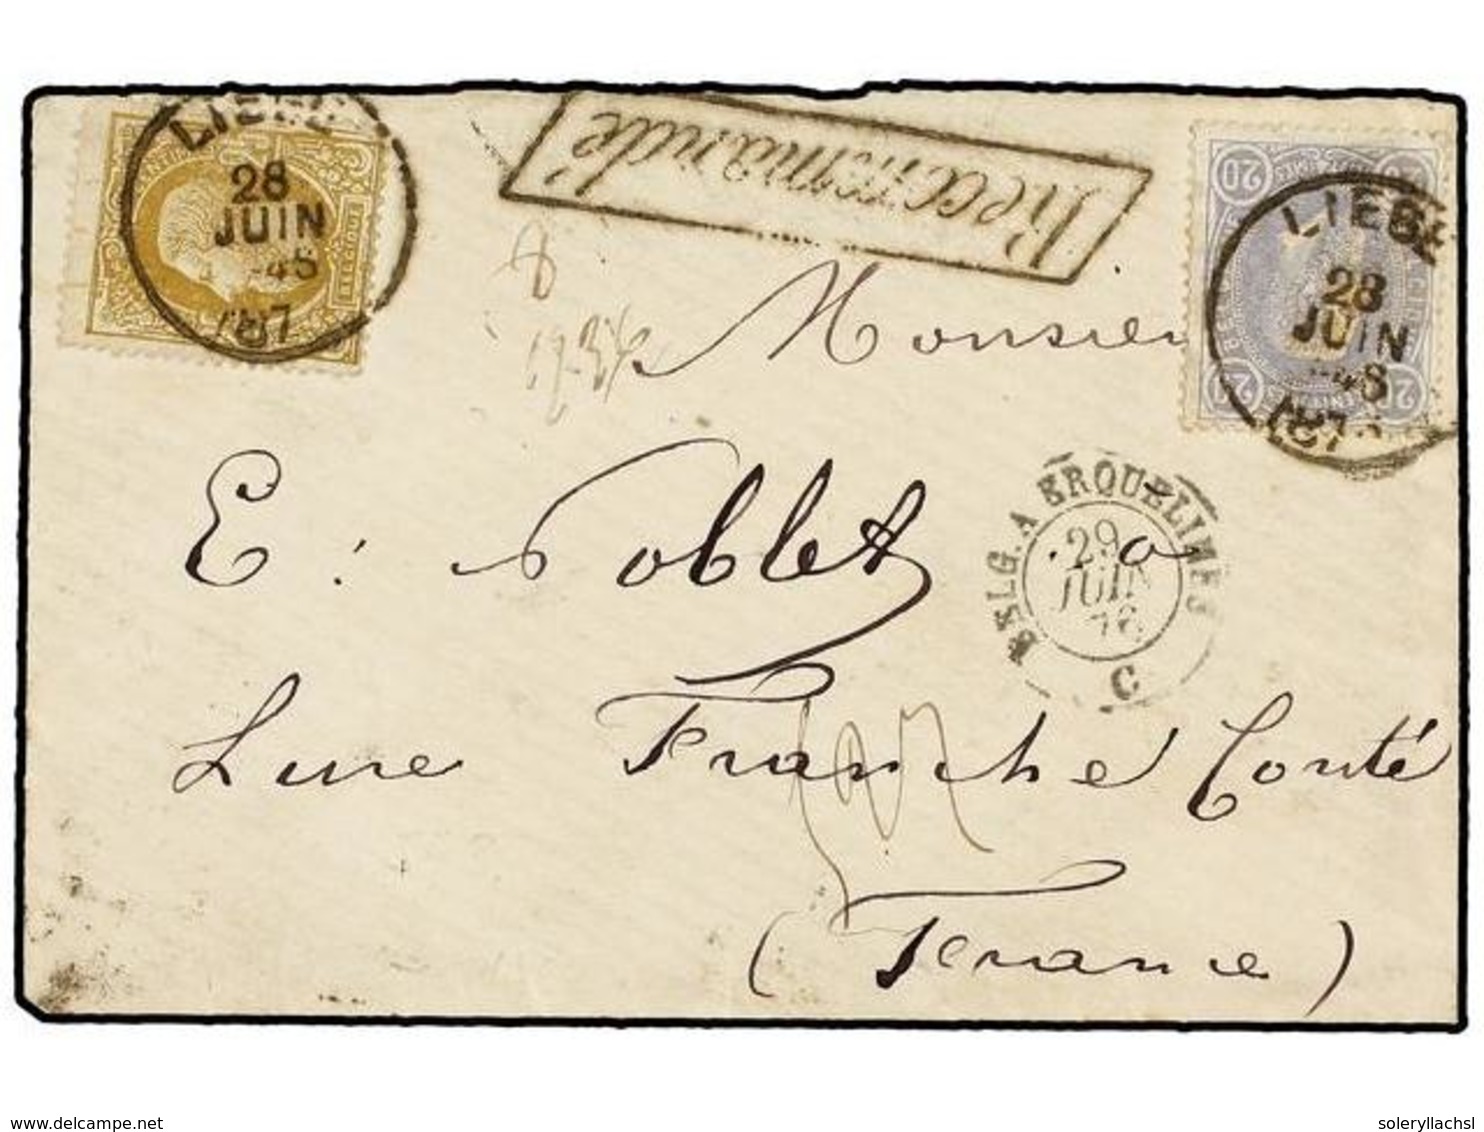 LIEGE
28
JUIN
187
Recommandé
20
LIEGE
28
JUIN
187
Monsieur
BELG. A ERQUELINES
29
JUIN
76
C
E. Noblet à
Lure Franche Comté
(France)
www.delcampe.net
soleryllachsl